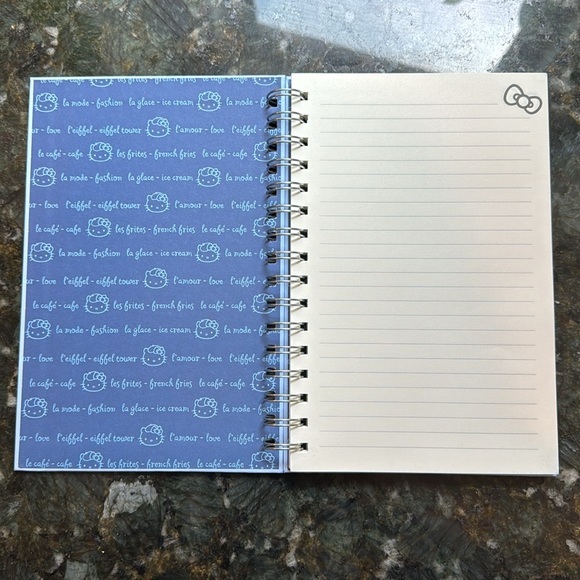 le café - cafe les frites - french fries le café - cafe
la mode - fashion la glace - ice cream la mode - fashion
our - love l'eiffel - eiffel tower l'amour - love l'eiffel -
le café - cafe les frites - french fries le café - cafe
la mode - fashion la glace - ice cream la mode - fashion
- love l'eiffel - eiffel tower l'amour - love l'eiffel -
le café - cafe les frites - french fries le café - cafe
la mode - fashion la glace - ice cream la mode -
- love l'eiffel - eiffel tower l'amour - love l'eiffel -
le café - cafe les frites - french fries le café - cafe
la mode - fashion la glace - ice cream la mode -
- love l'eiffel - eiffel tower l'amour - love l'eiffel -
le café - cafe les frites - french fries le café - cafe
la mode - fashion la glace - ice cream la mode -
our - love l'eiffel - eiffel tower l'amour - love l'eiffel -
le café - cafe les frites - french fries le café - cafe